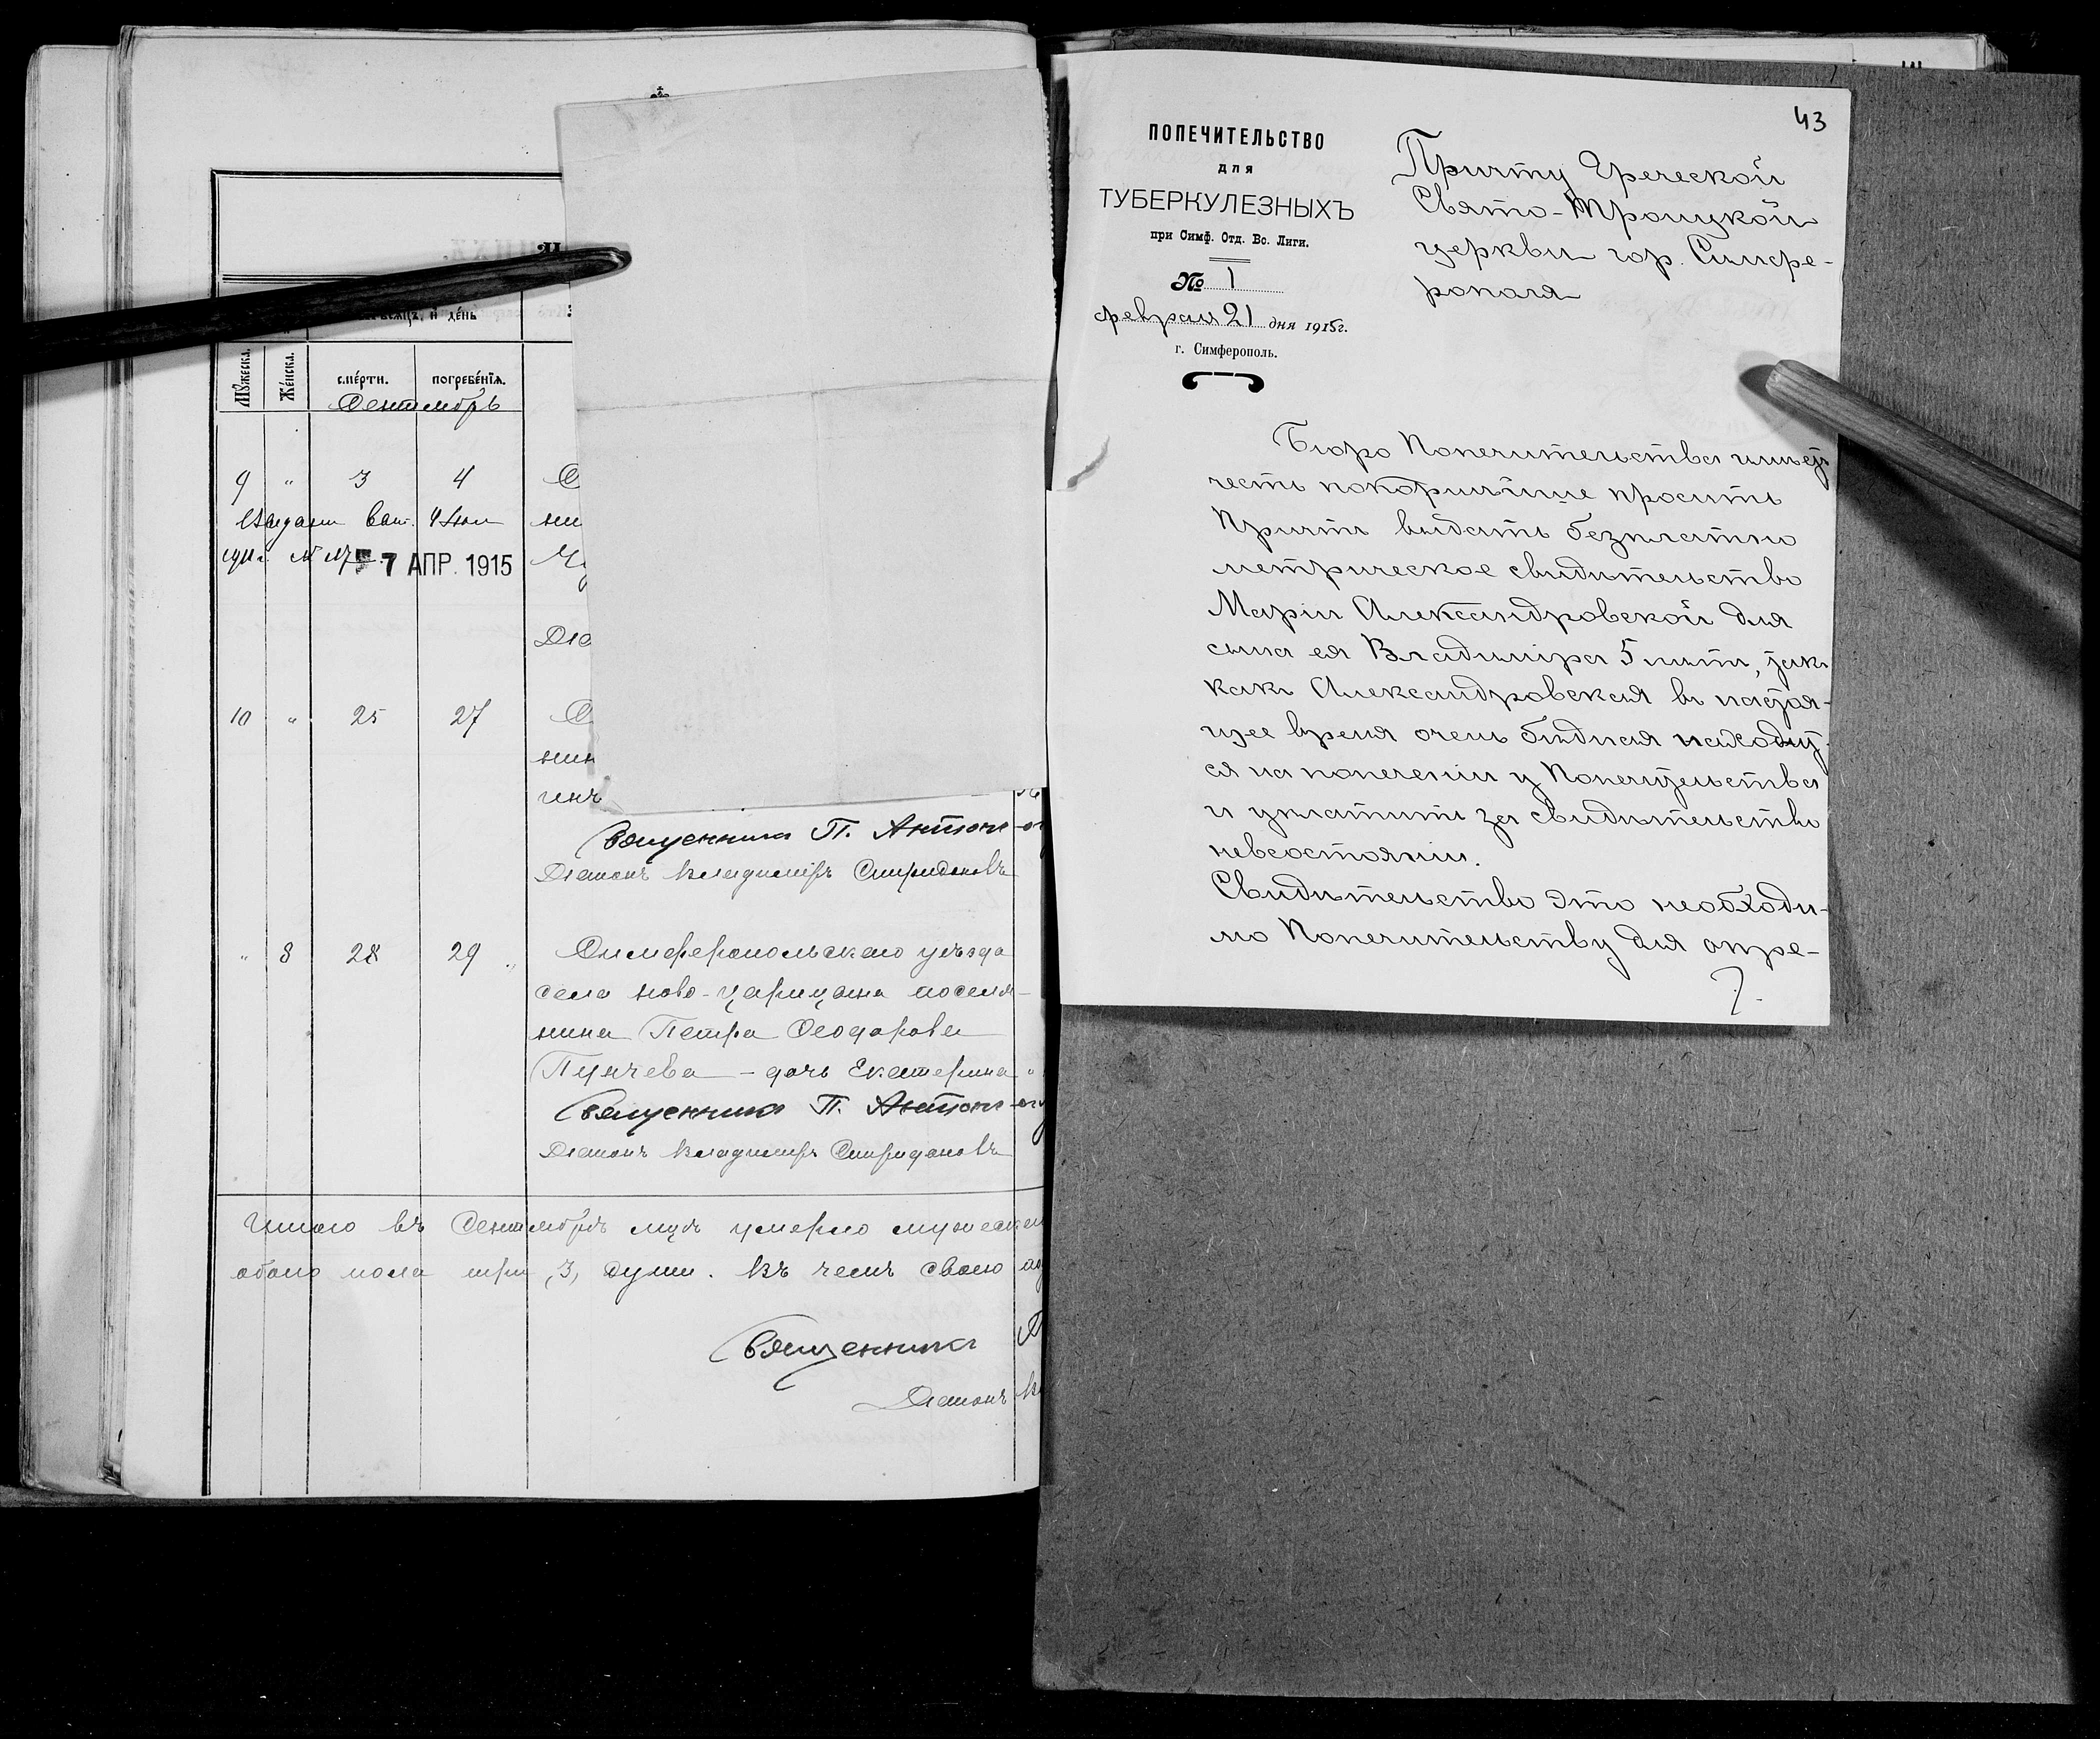 мѣсяцъ, и день
Мужеска.
Женска.
смерти.
погребенія.
Сентябрь
9 " 3 4 С
Выдали вып. 4 Іюл
7 АПР. 1915
Діа
10 " 25 27 С
нин
инъ
Священникъ П. Антоно
Діаконъ Владиміръ Спиридоновъ
" 8 28 29 Симферопольскаго уѣзда
села Ново-Царицына поселя-
нина Петра Ѳеодорова
Пунчева - дочь Екатерина
Священникъ П. Антоно
Діаконъ Владиміръ Спиридоновъ
Итого въ Сентябрѣ мцѣ умерло мужеска
обоего пола три, 3, души. Въ чемъ своею
Священникъ П
Діаконъ Вл
43
ПОПЕЧИТЕЛЬСТВО
для
ТУБЕРКУЛЕЗНЫХЪ
при Симф. Отд. Вс. Лиги.
№ 1
февраля 21 дня 1915 г.
г. Симферополь.
Причту Греческой
Свято-Троицкой
церкви гор. Симфе-
рополя
Бюро Попечительства имѣетъ
честь покорнѣйше просить
Причтъ выдать безплатно
метрическое свидѣтельство
Маріи Александровской для
сына ея Владиміра 5 лѣтъ, такъ
какъ Александровская въ настоя-
щее время очень бѣдная находит-
ся на попеченіи у Попечительства
и уплатить за свидѣтельство
невсостояніи.
Свидѣтельство это необходи-
мо Попечительству для опре-